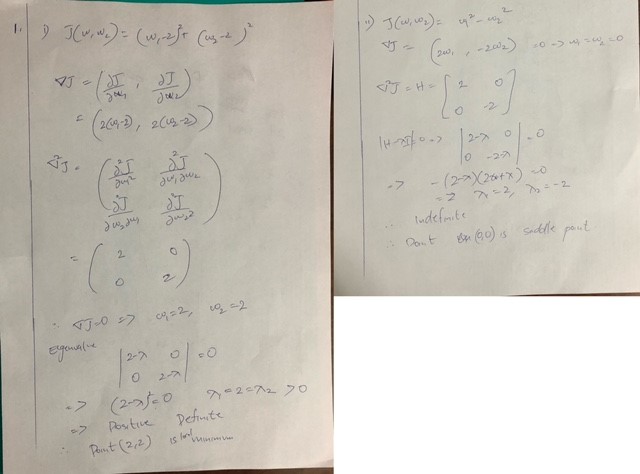 1. i) J(w₁,w₂) = (w₁-2)²+ (w₂-2)²
∇J = (∂J/∂w₁ , ∂J/∂w₂)
= (2(w₁-2), 2(w₂-2))
∇²J = ( ∂²J/∂w₁² ∂²J/∂w₁∂w₂
∂²J/∂w₂∂w₁ ∂²J/∂w₂² )
= ( 2 0
0 2 )
∴ ∇J=0 => w₁=2, w₂=2
Eigenvalue
| 2-λ 0
0 2-λ | =0
=> (2-λ)²=0 λ₁=2=λ₂ >0
=> Positive Definite
∴ Point (2,2) is local minimum
ii) J(w₁,w₂) = w₁²-w₂²
∇J = (2w₁, -2w₂) =0 -> w₁=w₂=0
∇²J = H = [ 2 0
0 -2 ]
|H-λI|=0 => | 2-λ 0
0 -2-λ | =0
=> -(2-λ)(2+λ) =0
=> λ₁=2, λ₂=-2
∴ Indefinite
∴ Point (0,0) is saddle point